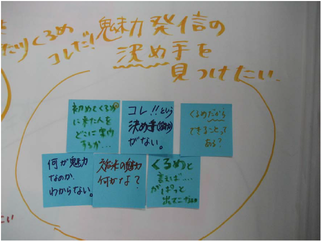 くるめ
コレだ!! 魅力発信の
決め手を
見つけたい
初めてくるめ
に来た人を
どこに案内
するか…
コレ!!という
決め手(自信)が
がない。
くるめだから
できること、も
ある!
何が魅力
なのか、
わからない。
久留米の魅力
何かな?
くるめと
言えば…
がぱっと
出てこない